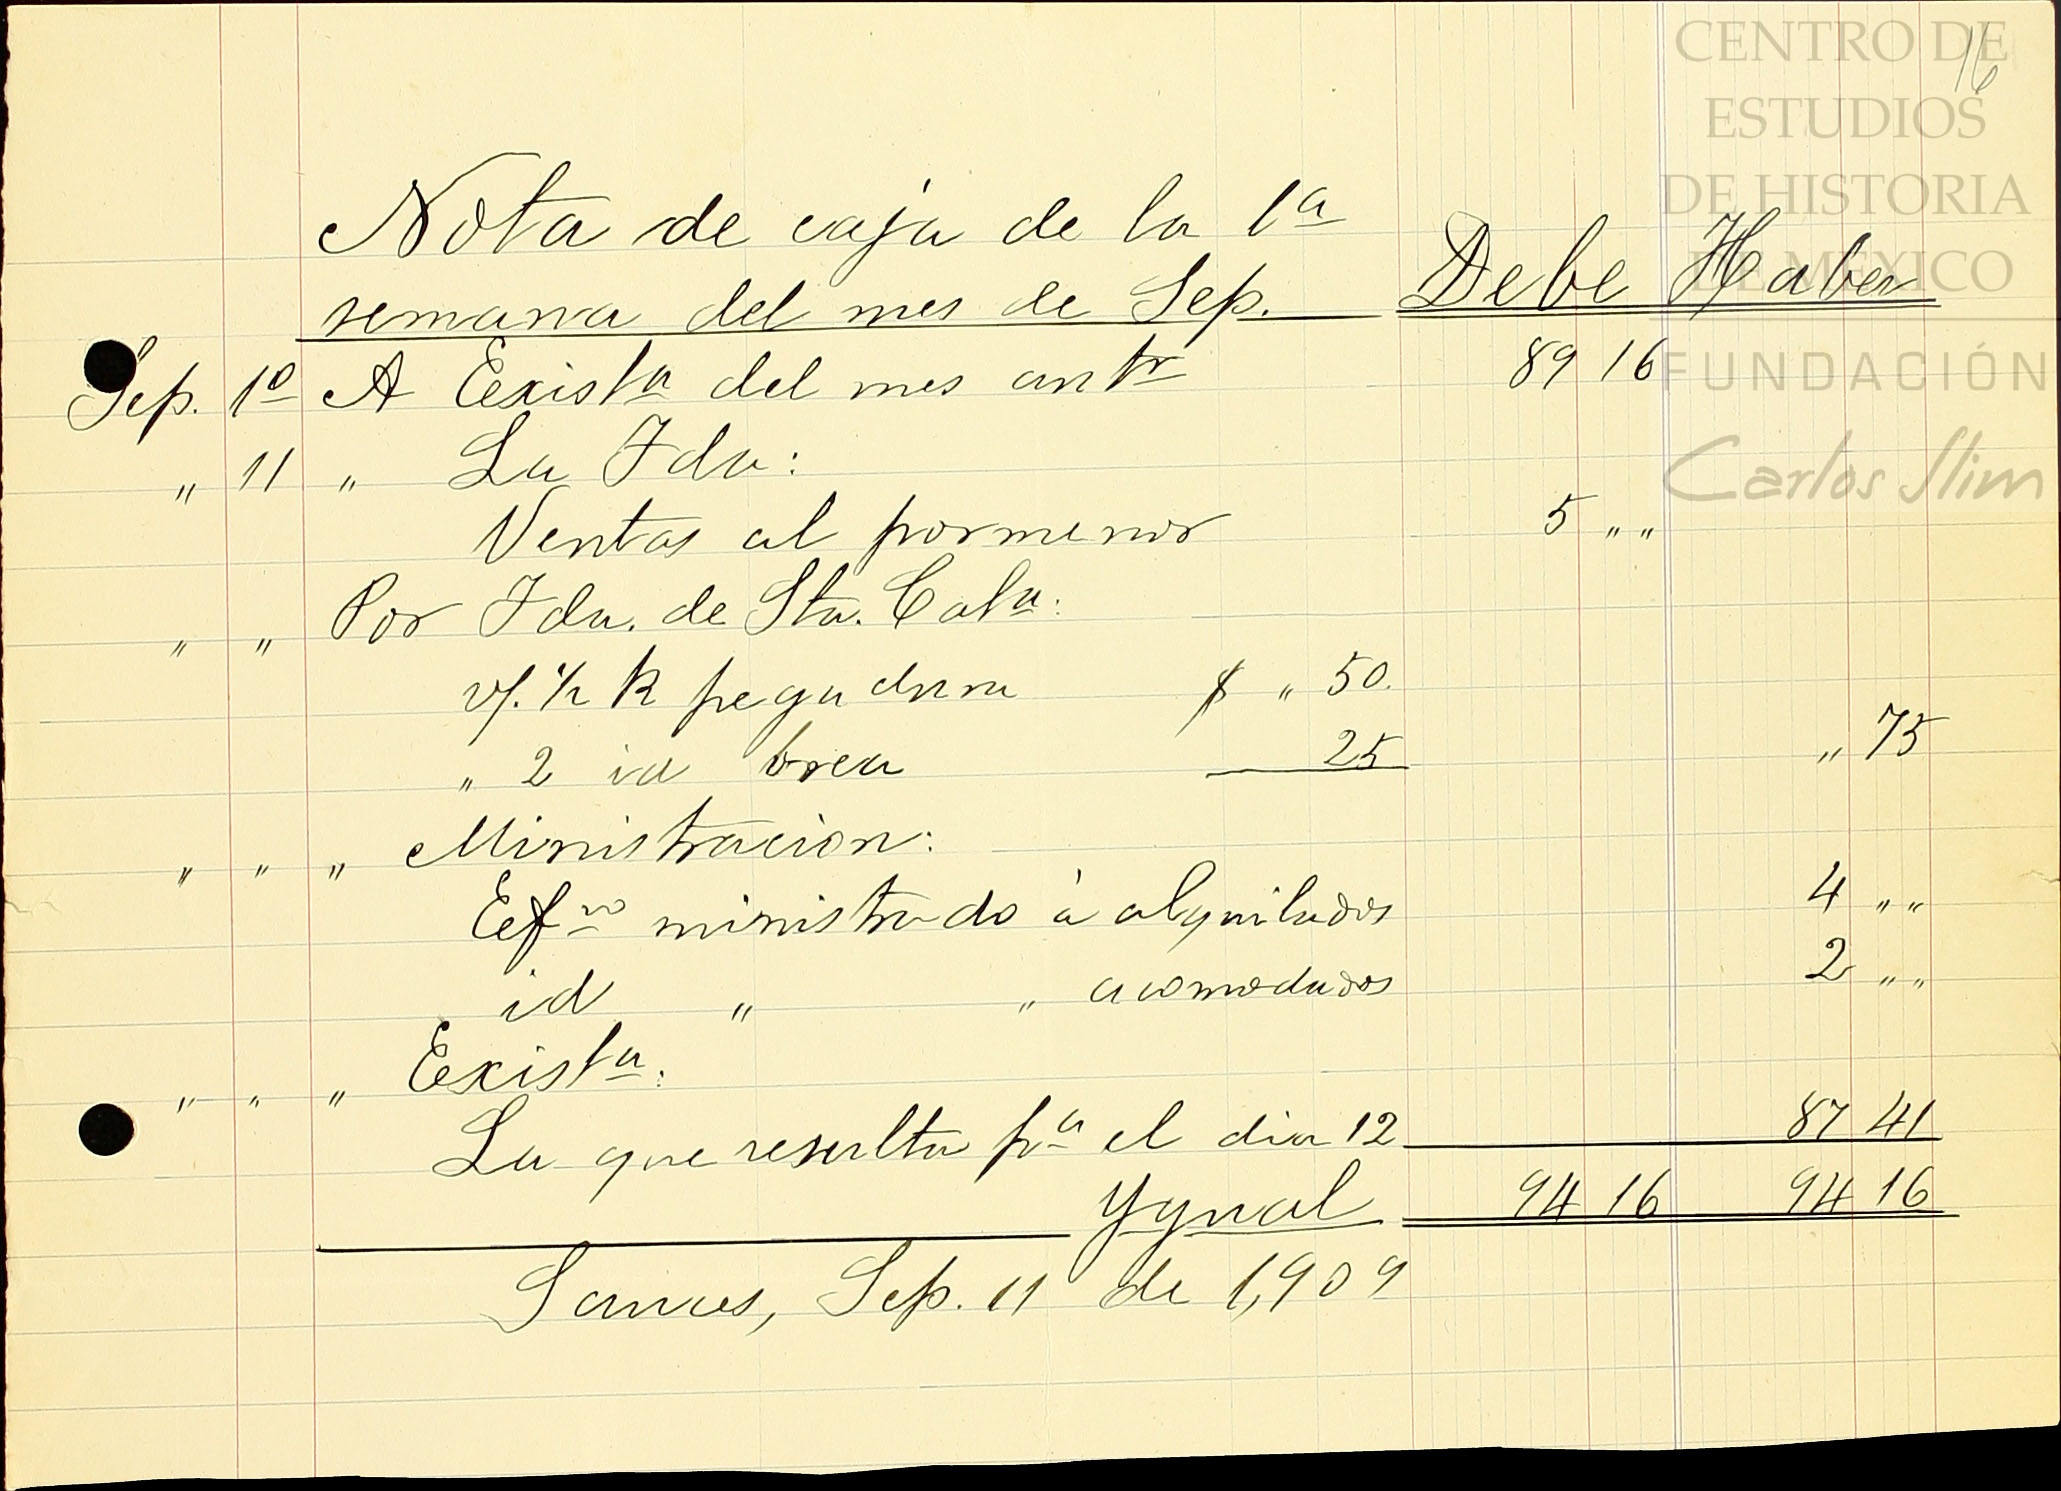 16
CENTRO DE
ESTUDIOS
DE HISTORIA
DE MÉXICO
FUNDACIÓN
Carlos Slim
Nota de caja de la 1a
semana del mes de Sep. Debe Haber
Sep. 1o A Exista del mes antr 89 16
" 11 " La Fda:
Ventas al pormenor 5 " "
" " Por Fda. de Sta. Cata:
v/. 1/2 K pegadura $ " 50.
" 2 id brea 25 " 75
" " " Ministracion:
Efvo ministrado á alquilados 4 " "
id " " acomodados 2 " "
" " " Exista:
La que resulta pa el dia 12 87 41
Ygual 94 16 94 16
Sep. 11 de 1,909